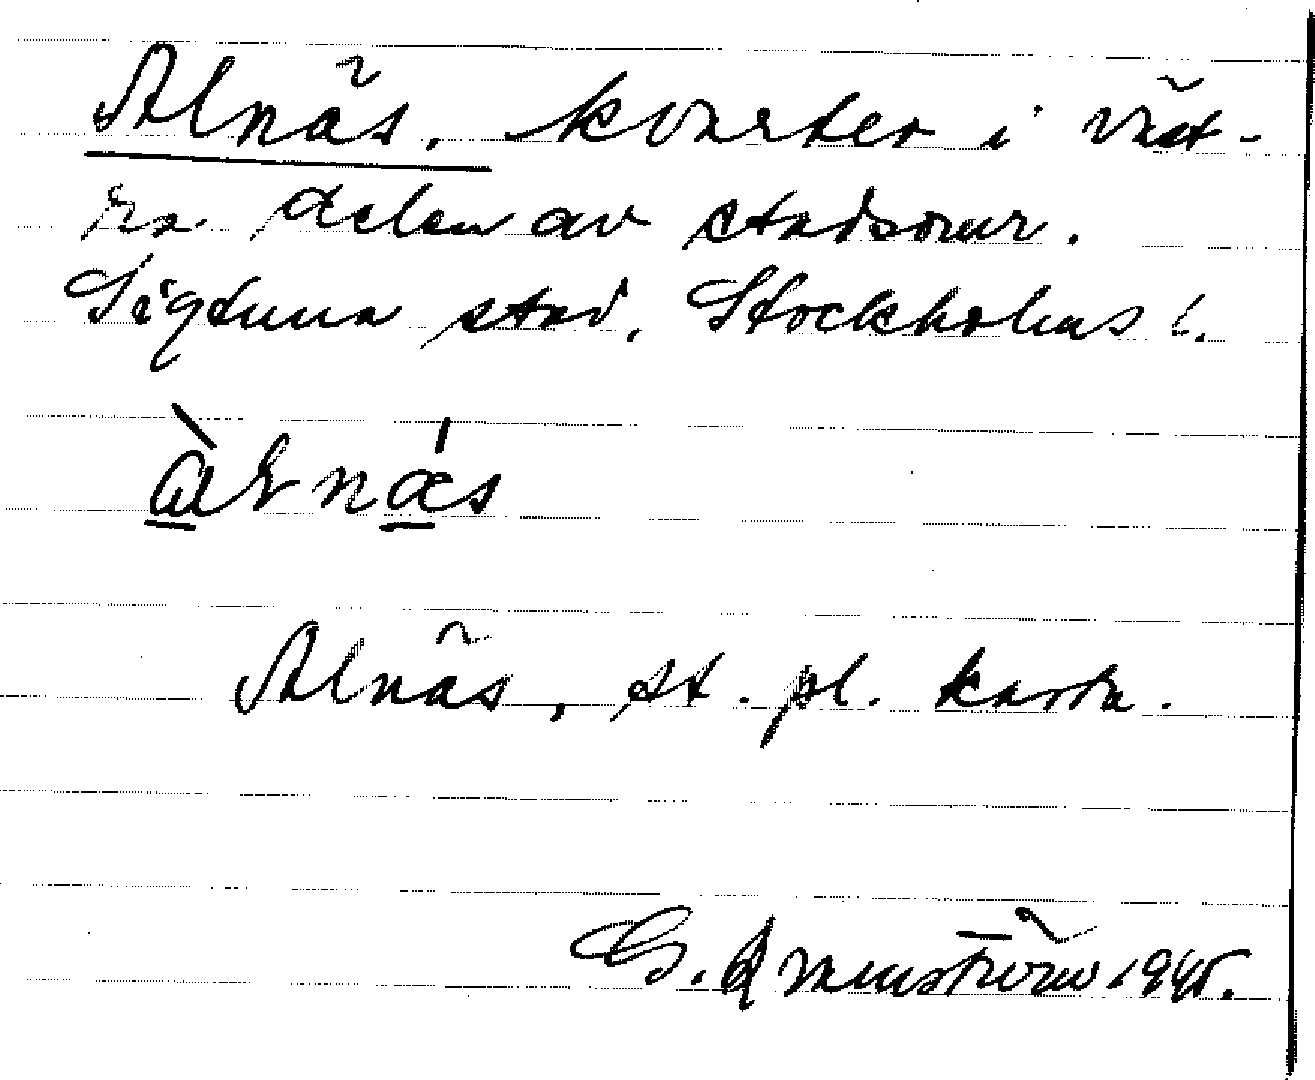 Alnäs, kvarter i väst-
ra delen av stadsomr.
Sigtuna stad, Stockholms l.
àlnás
Alnäs, st. pl. karta.
G. 1945.